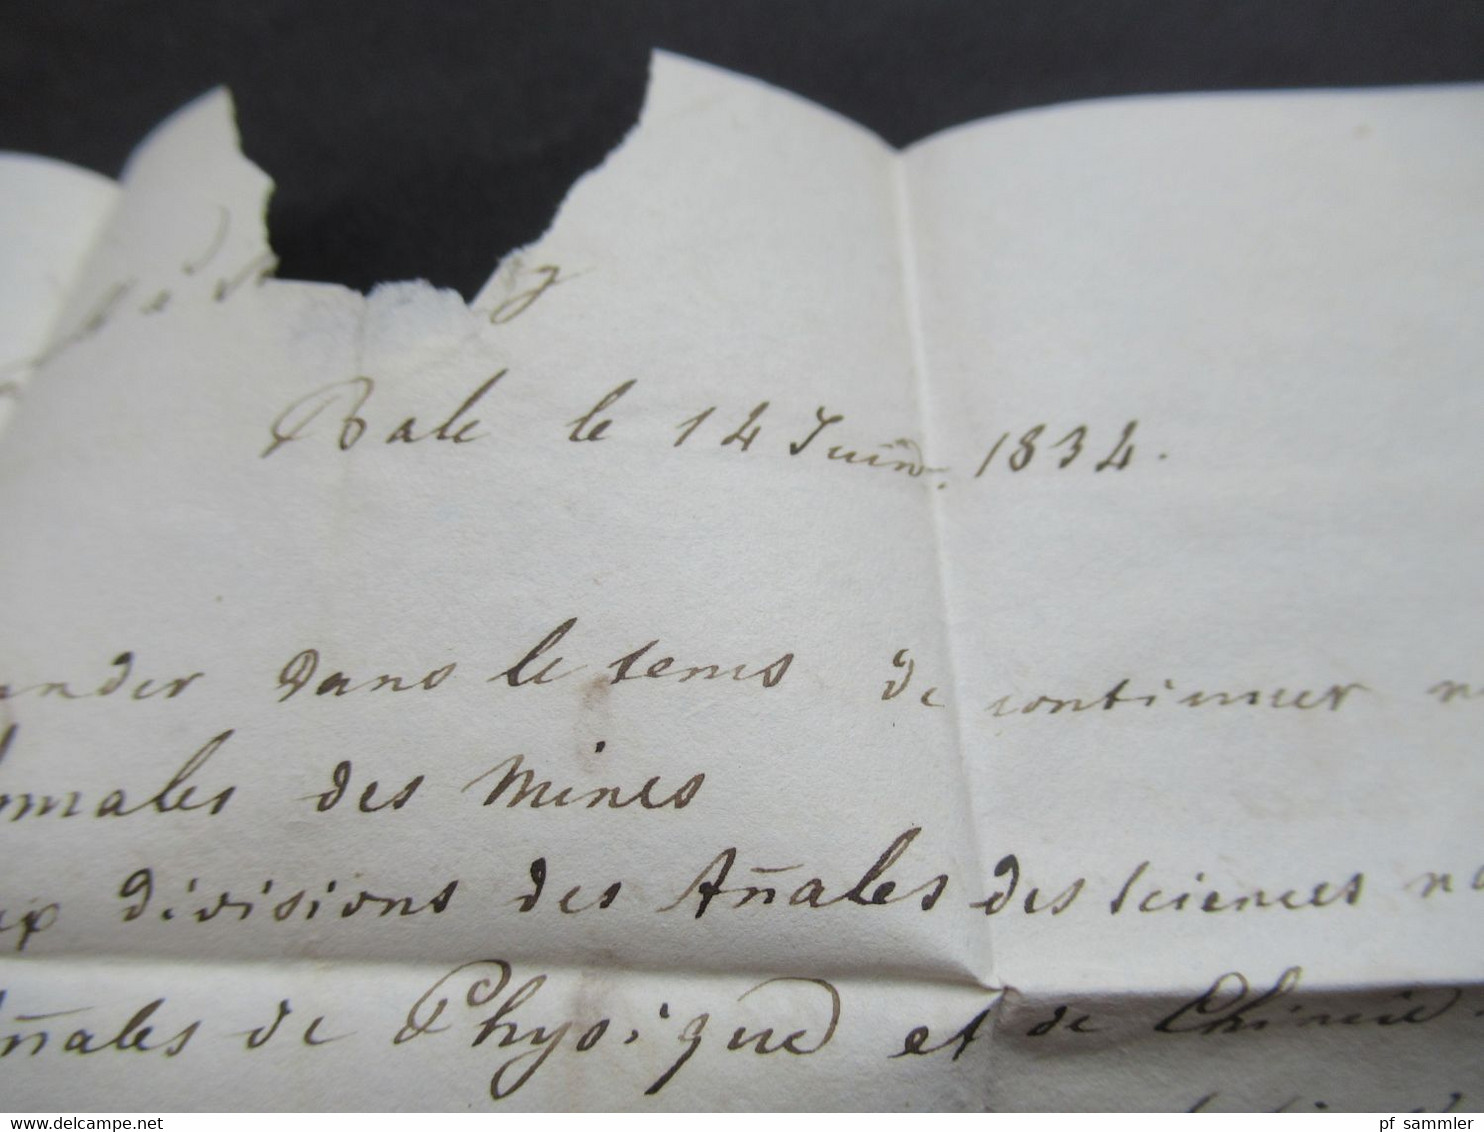 Bale le 14 Juin. 1834.
ander dans le tems de continuer
nnales des Mines
ux divisions desAñales des Sciences na
ñales de Physique et de Chimie
pf sammler
© www.delcampe.net